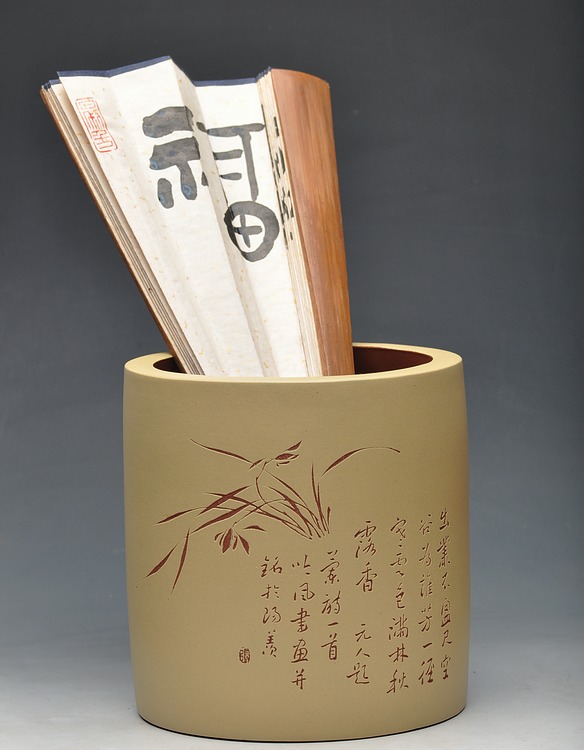 福
出叢不盈尺空
谷為誰芳一徑
寒雲色滿林秋
露香 元人題
蘭詩一首
吟風書畫并
銘於陽羨